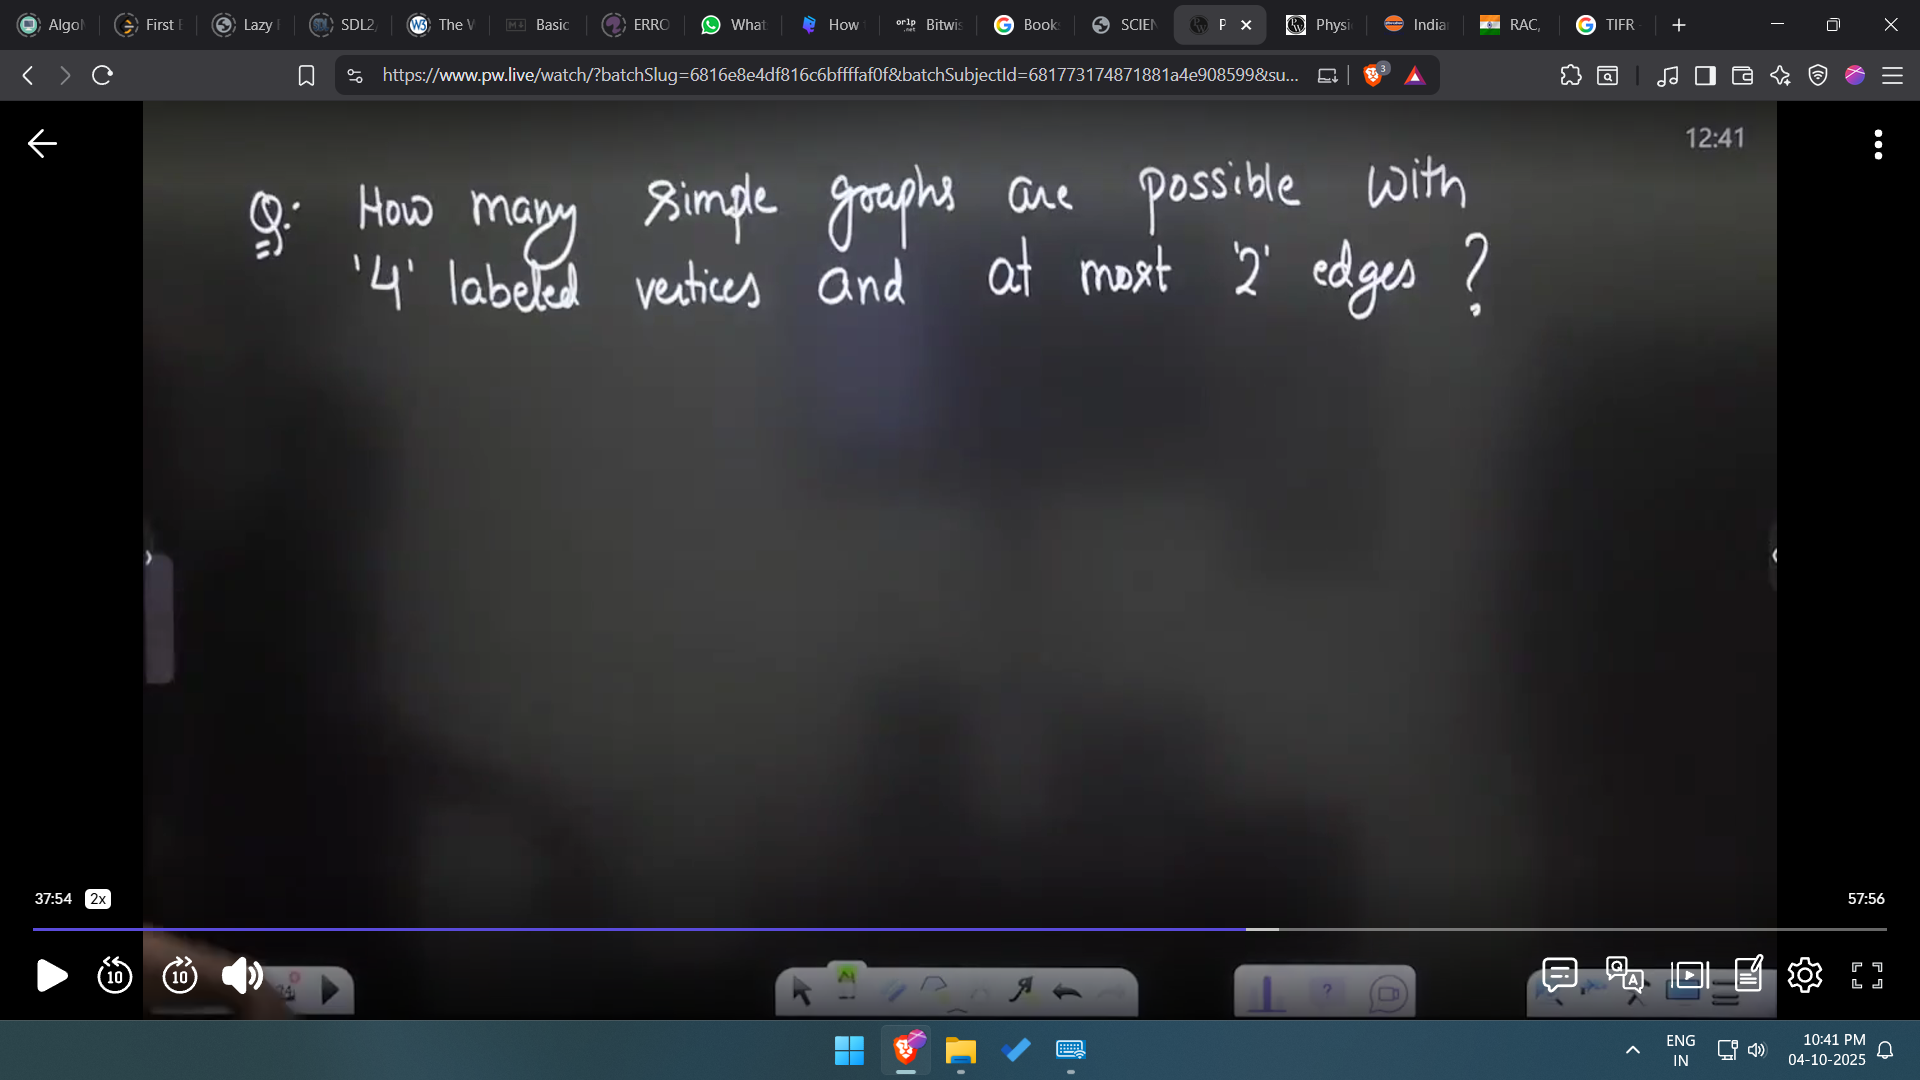 Algo
First E
Lazy
SDL2,
The W
Basic
ERRO
What
How
orlp .net Bitwis
Book
SCIEN
P
Physi
India
RAC,
TIFR
https://www.pw.live/watch/?batchSlug=6816e8e4df816c6bffffaf0f&batchSubjectId=681773174871881a4e908599&su...
3
12:41
Q: How many simple graphs are possible with
'4' labeled vertices and at most '2' edges ?
37:54 2x
57:56
10
10
ENG
IN
10:41 PM
04-10-2025